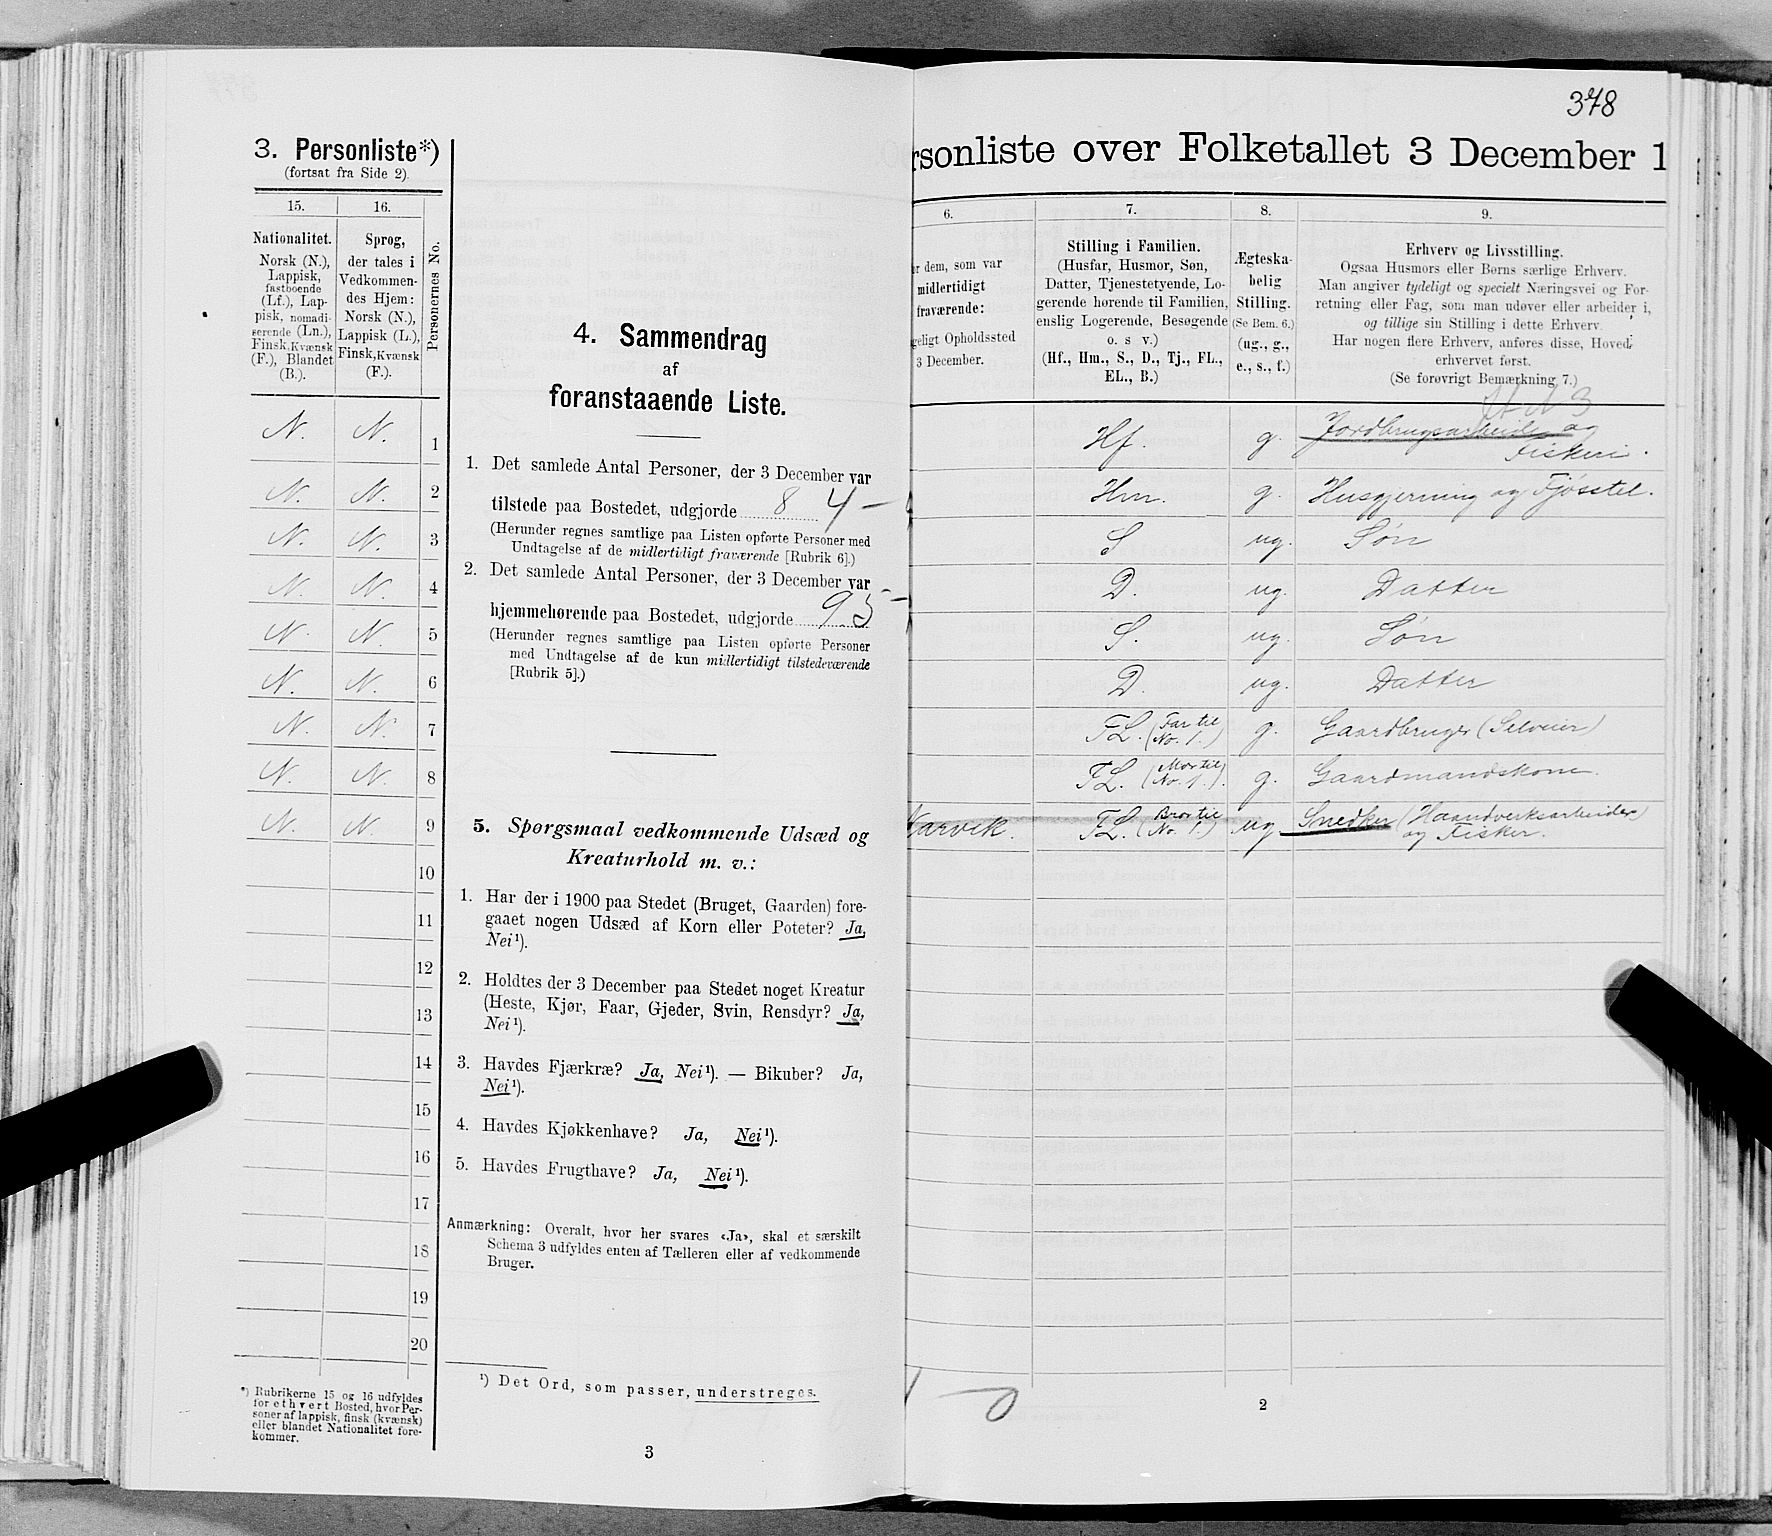 3. Personliste*)
(fortsat fra Side 2).
15.
16.
Personernes No.
Nationalitet.
Norsk (N.),
Lappisk,
fastboende
(Lf.), Lap-
pisk, nomadi-
serende (Ln.),
Finsk, Kvænsk
(F.), Blandet
(B.).
Sprog,
der tales i
Vedkommen-
des Hjem:
Norsk (N.),
Lappisk (L.),
Finsk, Kvænsk
(F.).
N. N. 1
N. N. 2
N. N. 3
N. N. 4
N. N. 5
N. N. 6
N. N. 7
N. N. 8
N. N. 9
10
11
12
13
14
15
16
17
18
19
20
*) Rubrikerne 15 og 16 udfyldes
for ethvert Bosted, hvor Per-
soner af lappisk, finsk (kvænsk)
eller blandet Nationalitet fore-
kommer.
4. Sammendrag
af
foranstaaende Liste.
1. Det samlede Antal Personer, der 3 December var
tilstede paa Bostedet, udgjorde 8 4 –
(Herunder regnes samtlige paa Listen opførte Personer med
Undtagelse af de midlertidigt fraværende [Rubrik 6].)
2. Det samlede Antal Personer, der 3 December var
hjemmehørende paa Bostedet, udgjorde 9 5 –
(Herunder regnes samtlige paa Listen opførte Personer
med Undtagelse af de kun midlertidigt tilstedeværende
[Rubrik 5].)
5. Spørgsmaal vedkommende Udsæd og
Kreaturhold m. v.:
1. Har der i 1900 paa Stedet (Bruget, Gaarden) fore-
gaaet nogen Udsæd af Korn eller Poteter? Ja,
Nei¹).
2. Holdtes der 3 December paa Stedet noget Kreatur
(Heste, Kjør, Faar, Gjeder, Svin, Rensdyr? Ja,
Nei¹).
3. Havdes Fjærkræ? Ja, Nei¹). — Bikuber? Ja,
Nei¹).
4. Havdes Kjøkkenhave? Ja, Nei¹).
5. Havdes Frugthave? Ja, Nei¹).
Anmærkning: Overalt, hvor her svares «Ja», skal et særskilt
Schema 3 udfyldes enten af Tælleren eller af vedkommende
Bruger.
¹) Det Ord, som passer, understreges.
3
378
rsonliste over Folketallet 3 December 1
6.
7.
8.
9.
r dem, som var
midlertidigt
fraværende:
geligt Opholdssted
3 December.
Stilling i Familien.
(Husfar, Husmor, Søn,
Datter, Tjenestetyende, Lo-
gerende hørende til Familien,
enslig Logerende, Besøgende
o. s v.)
(Hf., Hm., S., D., Tj., FL.,
EL., B.)
Ægteska-
belig
Stilling.
(Se Bem. 6.)
(ug., g.,
e., s., f.)
Erhverv og Livsstilling.
Ogsaa Husmors eller Børns særlige Erhverv.
Man angiver tydeligt og specielt Næringsvei og For-
retning eller Fag, som man udøver eller arbeider i,
og tillige sin Stilling i dette Erhverv.
Har nogen flere Erhverv, anføres disse, Hoved-
erhvervet først.
(Se forøvrigt Bemærkning 7.)
Hf. g. Jordbrugsarbeider og
Fiskeri.
Hm. g. Husgjerning og Fjøsstel.
S ug. Søn
D. ug. Datter
S. ug. Søn
D. ug. Datter
FL. (Far til
No. 1.) g. Gaardbruger (Selveier)
FL. (Mor til
No. 1.). g. Gaardmandskone.
Narvik. FL. (Bror til
No. 1.) ug Snedker (Haandverksarbeider)
og Fisker.
2